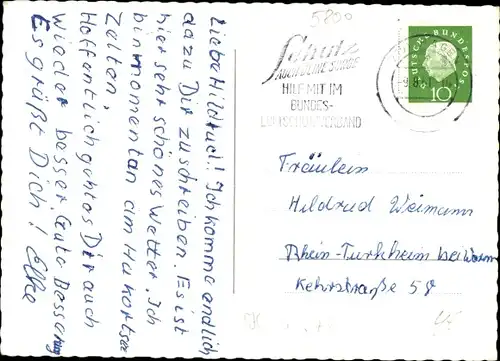 Liebe Hildrud! Ich komme endlich
dazu Dir zu schreiben. Es ist
hier sehr schönes Wetter. Ich
bin momentan am Hakortsee
Zelten,
Hoffentlich gehtes Dir auch
wieder besser. Gute Besserung
Es grüßt Dich! Elke
5800
Schutz
AUCH DEINE SORGE
HILF MIT IM
BUNDES-
LUFTSCHUTZVERBAND
DEUTSCHE BUNDESPOST
10
Fräulein
Hildrud Weimann
Rhein-Türkheim bei Worms
Kehrstraße 58